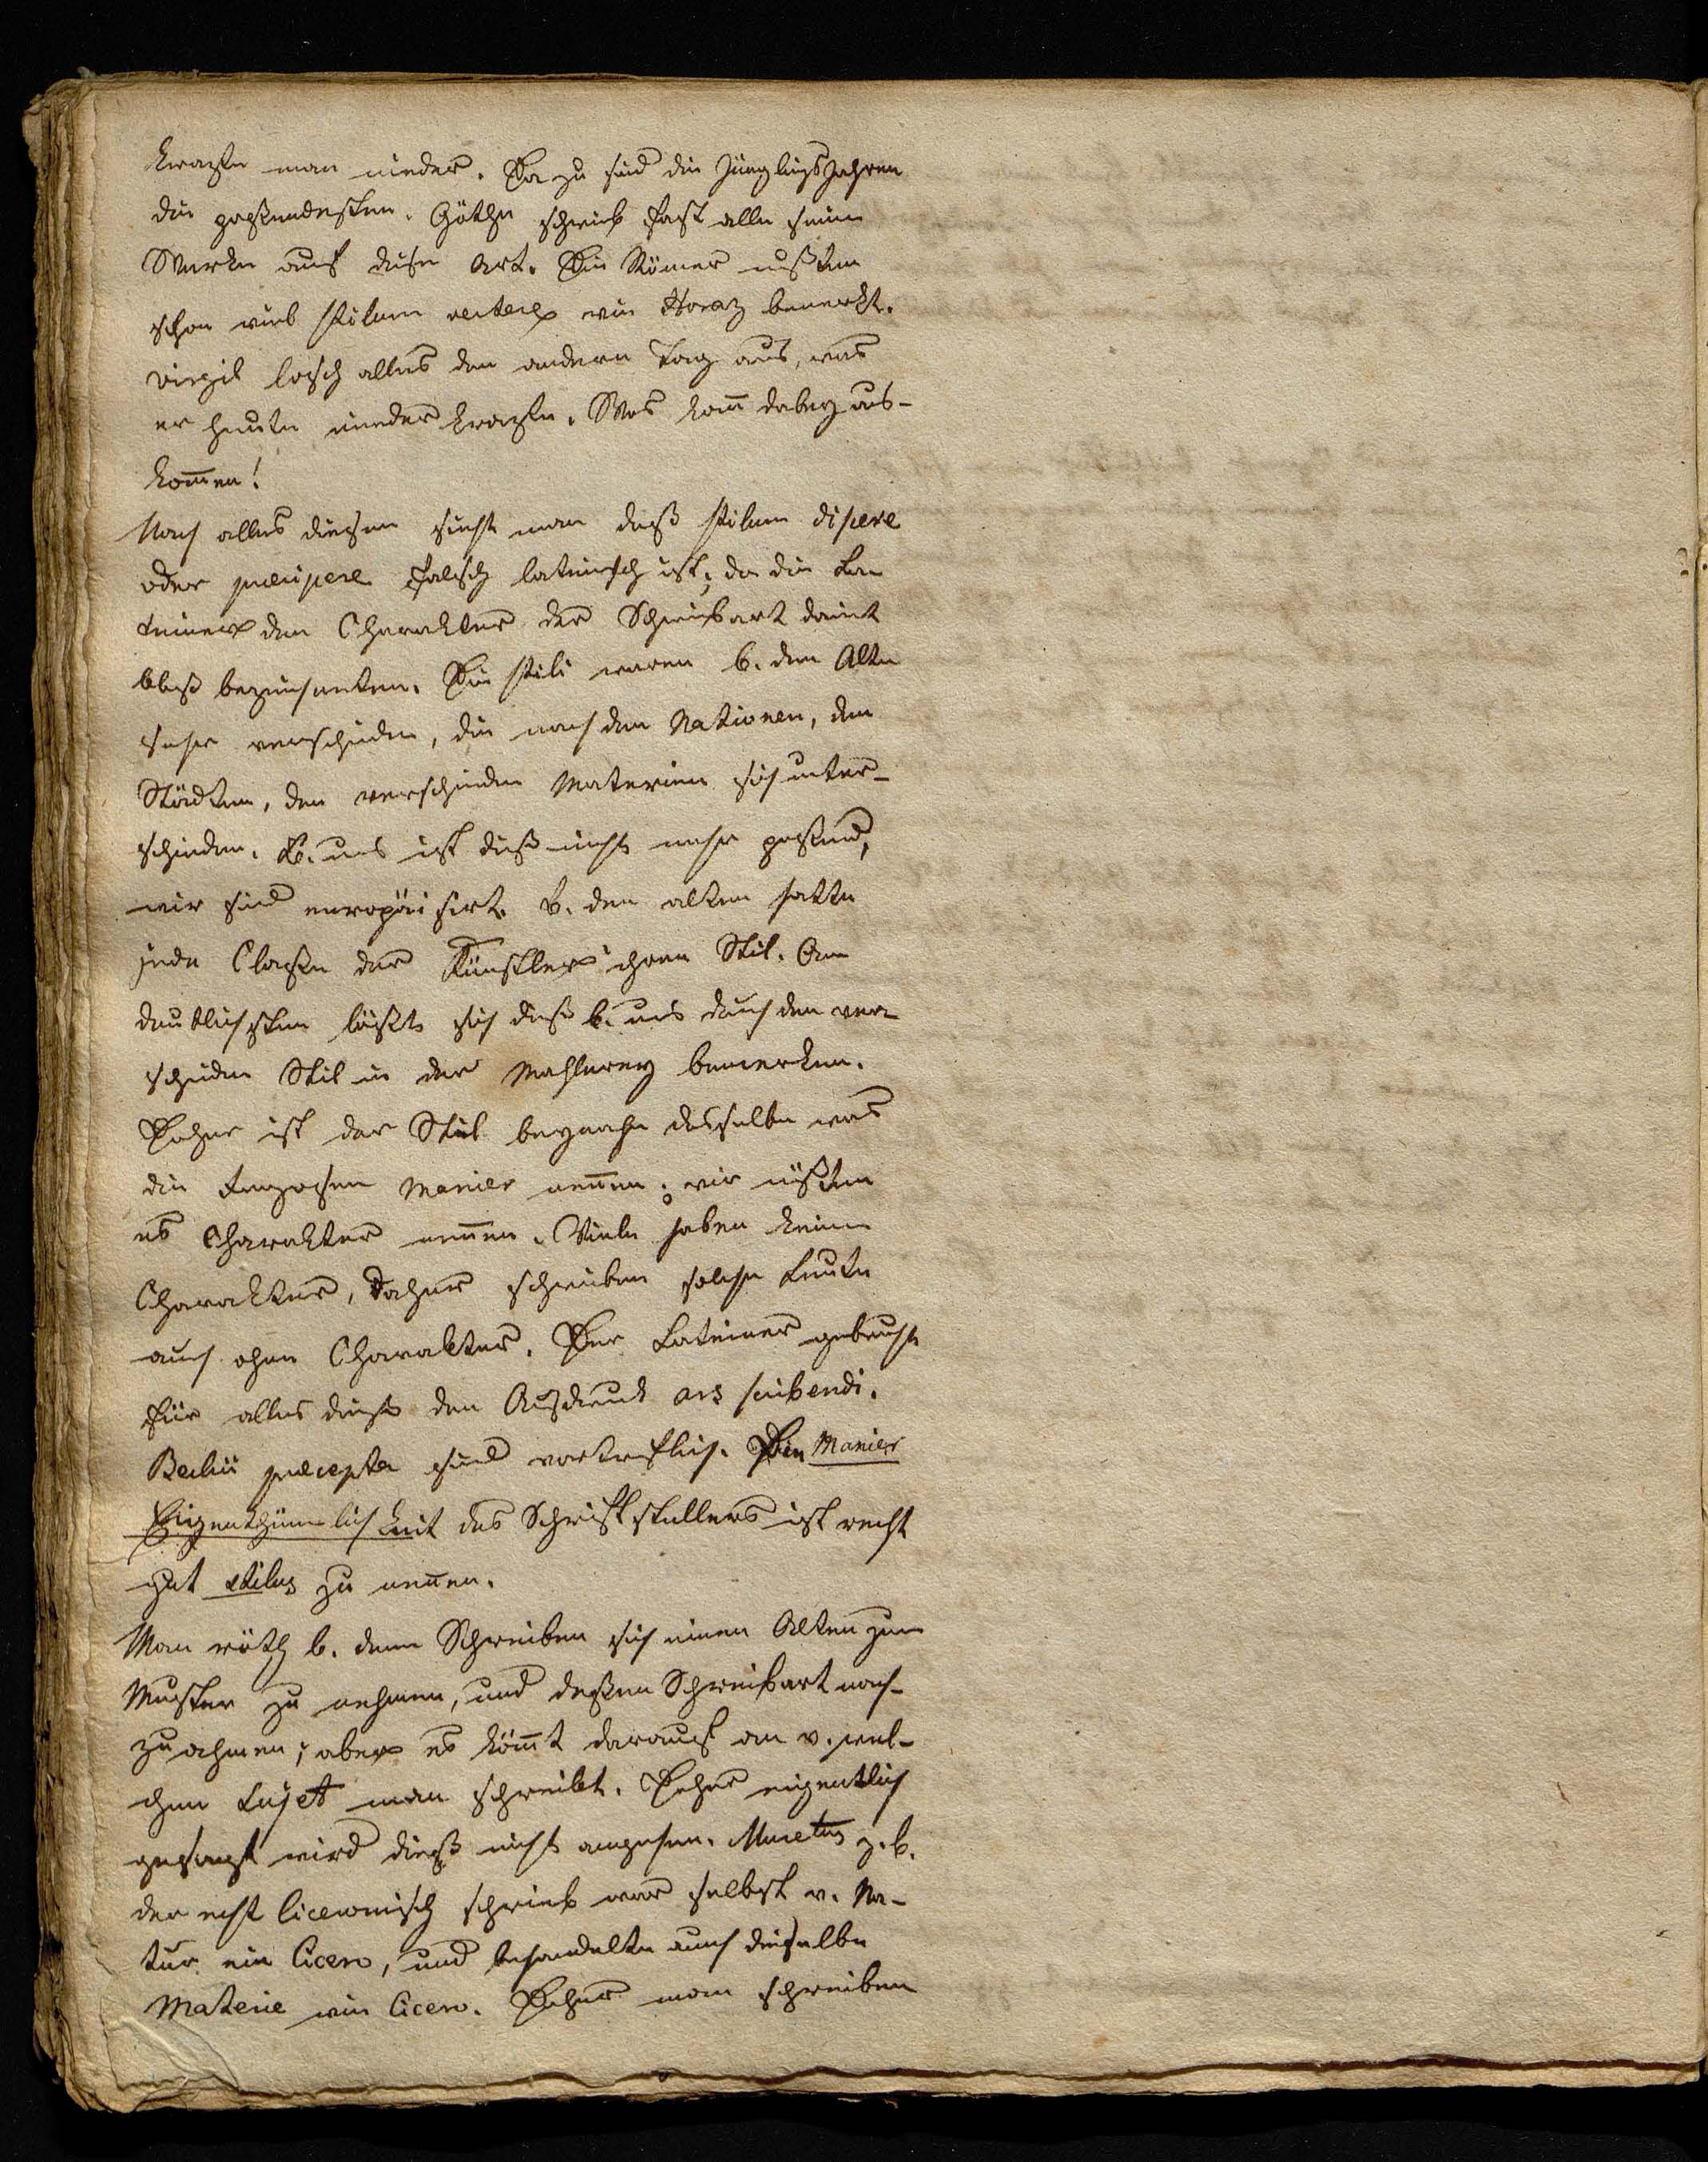 kratze man nieder. Da zu sind die Jünglings Jahren
die paßendesten. Göthe schrieb fast alle seine
Werke auf diese Art. Die Römer mußten
schon viel stilum vertere wie Horaz bemerkt.
Virgil losch alles den andern Tag aus, was
er heute nieder kratzte. Was kan dabey aus-
kom̅en!
Nach alles diesem sieht man daß stilum discere
oder praecipere falsch lateinisch ist; da die La
teiner den Charakter der Schreibart damit
blos bezeichneten. Die stili waren b. den Alten
sehr verschieden, die nach den Nationen, den
Städten, den verschieden Materien sich unter-
schieden. B. uns ist dieß nicht mehr paßend,
wir sind europäisirt. B. den alten hatte
jede Claße der Künstler ihren Stil. Am
deutlichsten läßt sich dieß b. uns durch den ver
schieden Stil in der Mahlerey bemerken.
Daher ist der Stil beynahe desselbe was
die Franzosen manier nen̅en; wir müßten
es Charakter nen̅en. Viele haben keinen
Charakter, daher schreiben solche Leute
auch ohne Charakter. Der Lateiner gebraucht
für alles dieses den Ausdruck ars scribendi.
praecepta sind vortreflich. Die Manier
Eigenthümlichkeit des Schriftstellers ist recht
gut stilus zu nen̅en.
Man räth b. dem Schreiben sich einen Alten zum
Muster zu nehmen, und deßen Schreibart nach-
zuahmen; aber es köm̅t darauf an v. wel-
chem Sujet man schreibt. Daher eigentlich
gesagt wird dieß nicht angehen. Muretus z. b.
der echt ciceronisch schrieb war selbst v. Na-
tur ein Cicero, und behandelte auch dieselbe
Materie wie Cicero. Daher man schreiben